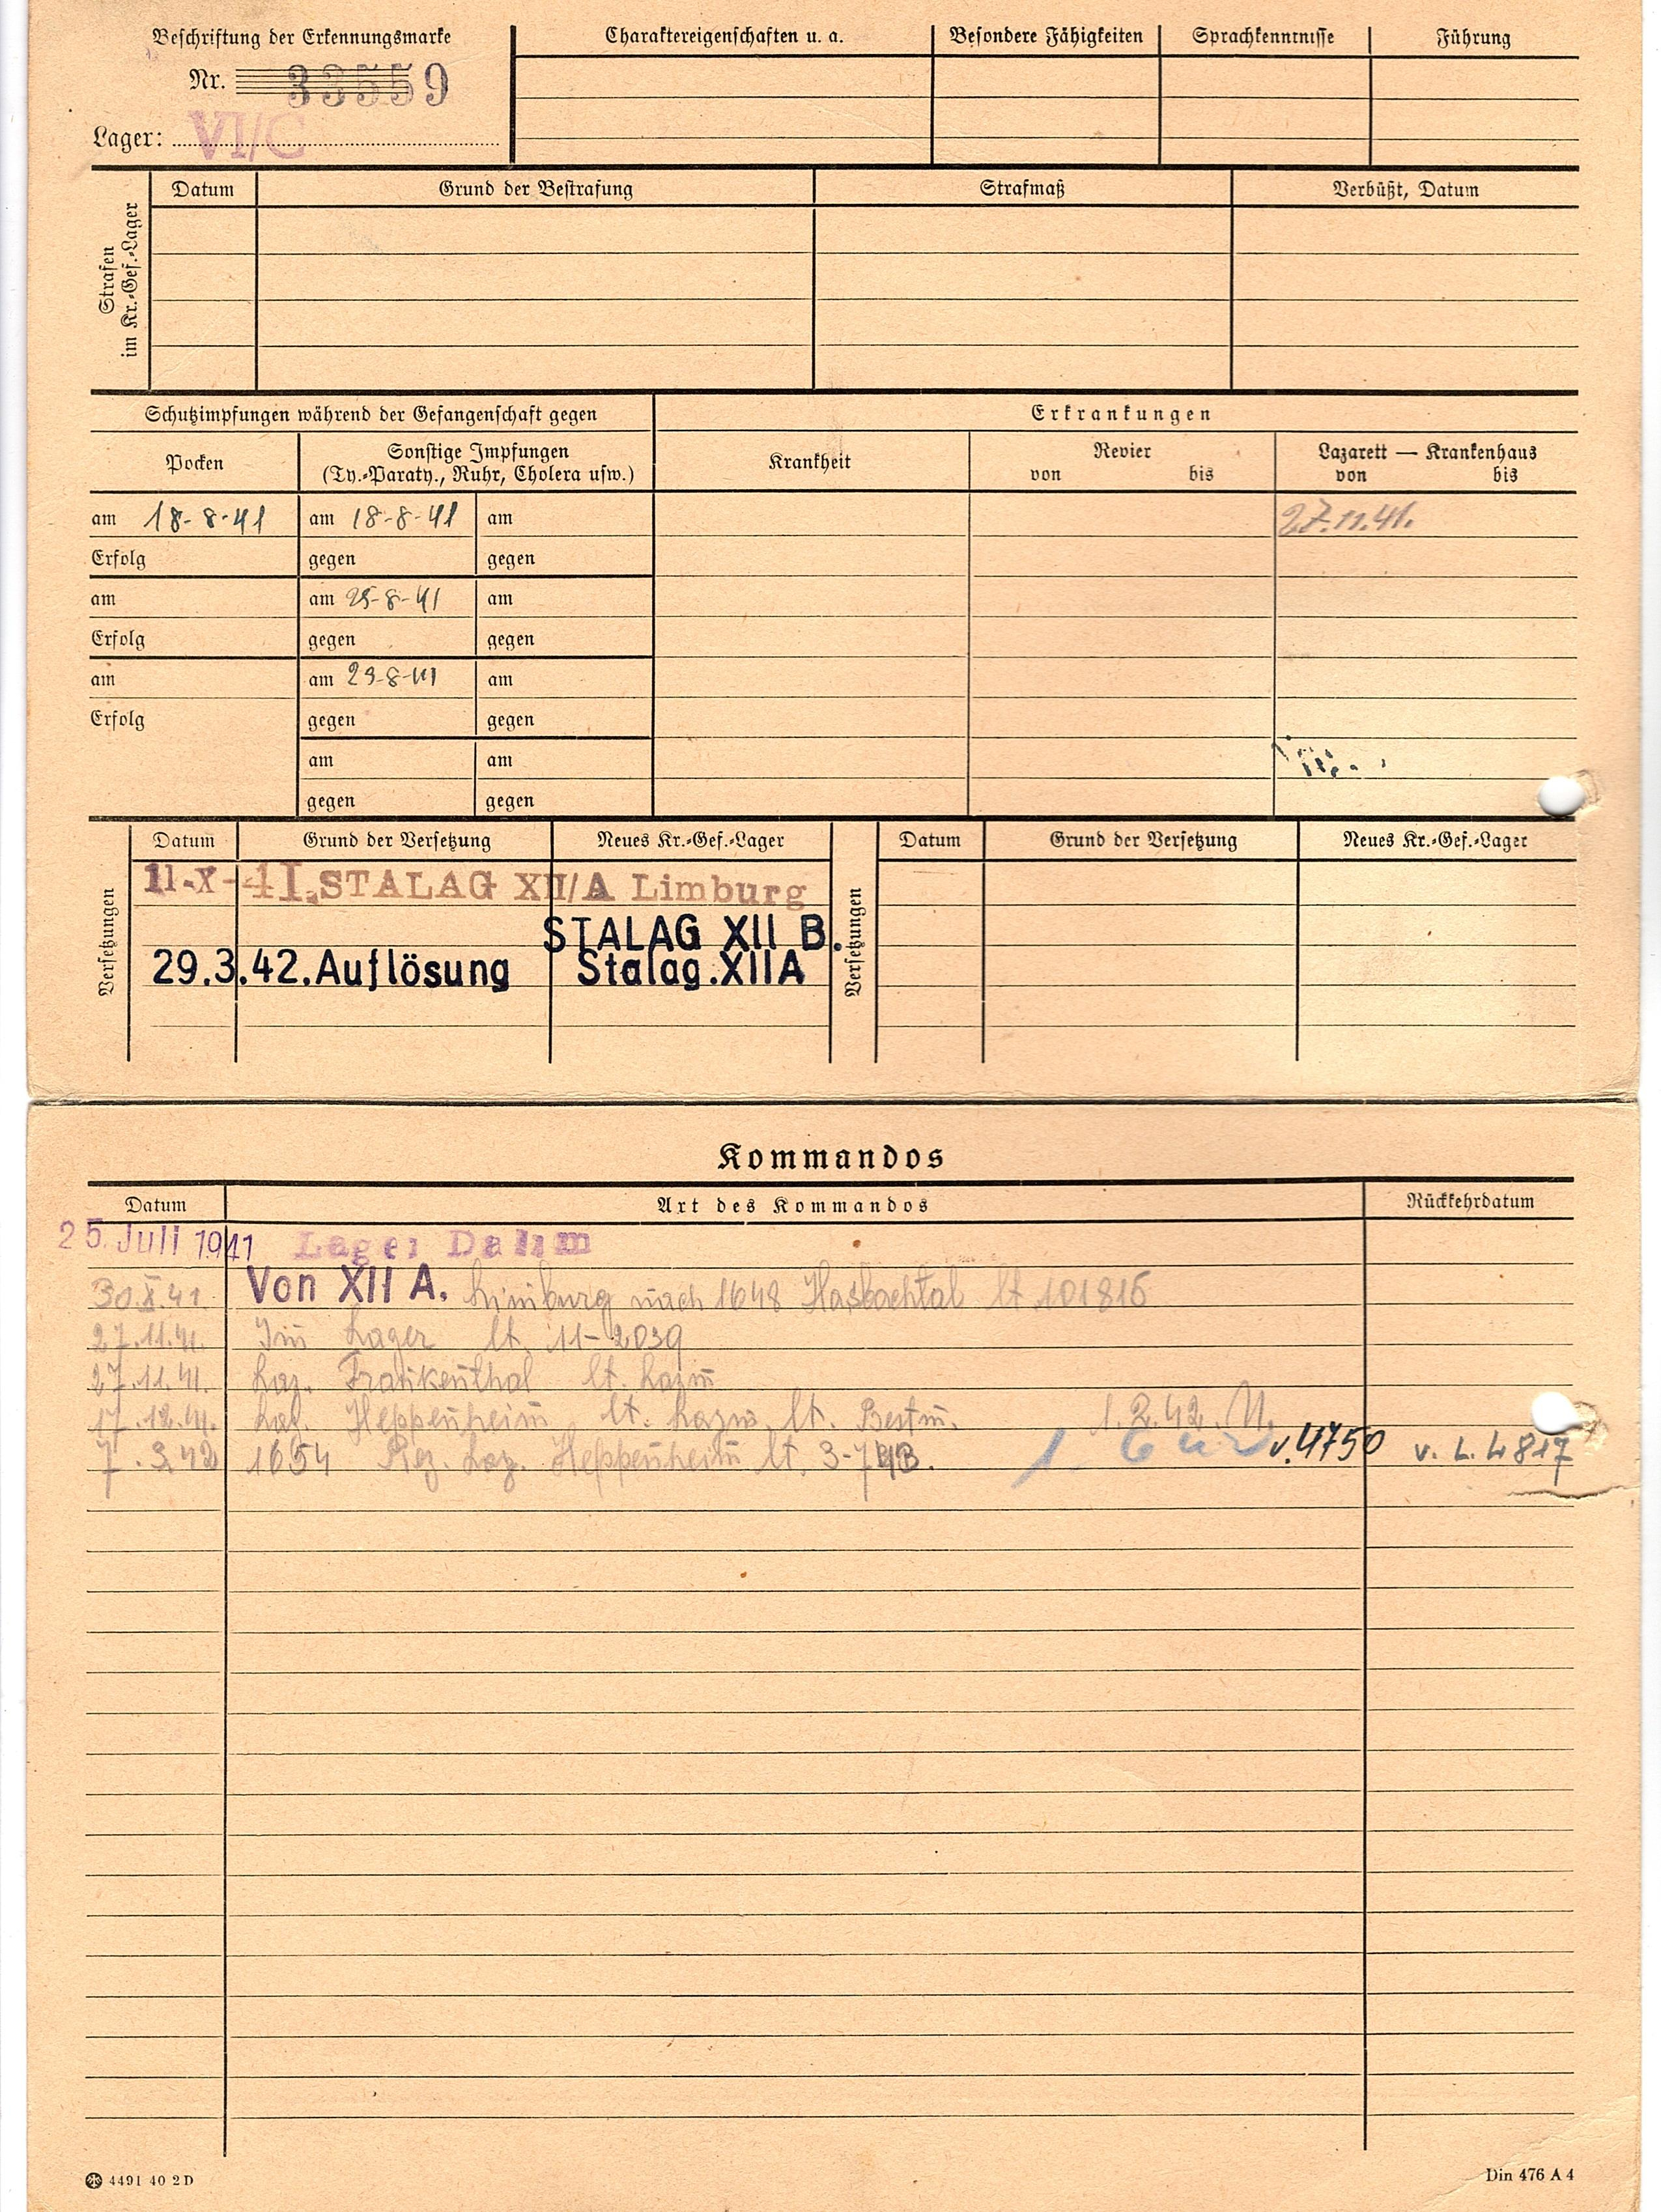 Beschriftung der Erkennungsmarke
Nr. 33559
Lager: VI/C
Charaktereigenschaften u. a.
Besondere Fähigkeiten
Sprachkenntnisse
Führung
Strafen im Kr.-Gef.-Lager
Datum
Grund der Bestrafung
Strafmaß
Verbüßt, Datum
Schutzimpfungen während der Gefangenschaft gegen
Erkrankungen
Pocken
Sonstige Impfungen
(Ty.-Paraty., Ruhr, Cholera usw.)
Krankheit
Revier
von bis
Lazarett — Krankenhaus
von bis
am 18-8-41 am 18-8-41 am 27.11.41.
Erfolg gegen gegen
am am 25-8-41 am
Erfolg gegen gegen
am am 29-8-41 am
Erfolg gegen gegen
am am
gegen gegen
Versetzungen
Datum Grund der Versetzung Neues Kr.-Gef.-Lager
11-X-41. STALAG XII/A Limburg
STALAG XII B.
29.3.42. Auflösung Stalag. XII A
Versetzungen
Datum Grund der Versetzung Neues Kr.-Gef.-Lager
Kommandos
Datum Art des Kommandos Rückkehrdatum
25. Juli 1941 Lager Dalum
30.X.41. Von XII A. Limburg nach 1648 Hasbachtal lt 101816
27.11.41. Im Lager lt. 11-2039
27.11.41. Laz. Frankenthal lt. Lazm
17.12.41. Laz. Heppenheim lt. Lazm. lt. Bestm. 1.2.42.
7.3.42 1654 Rez. Laz. Heppenheim lt. 3-743. v.4750 v. L. 4817
4491 40 2 D
Din 476 A 4